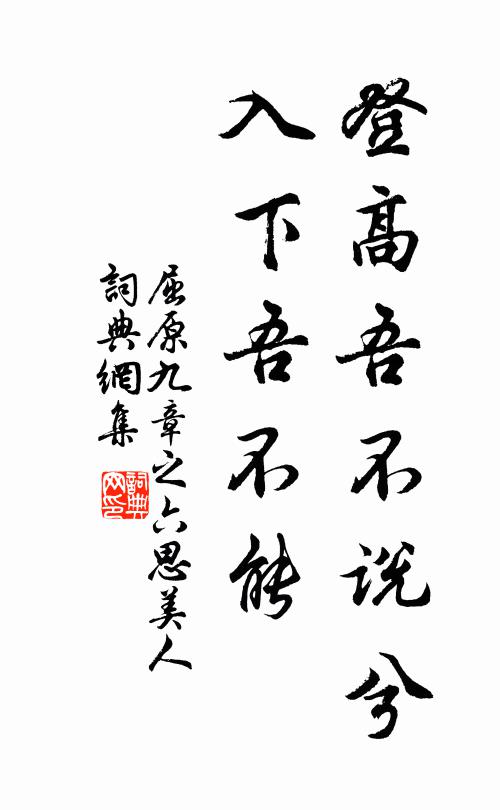 登高吾不说兮
入下吾不能
屈原九章之六思美人
詞典網集
詞典
网印